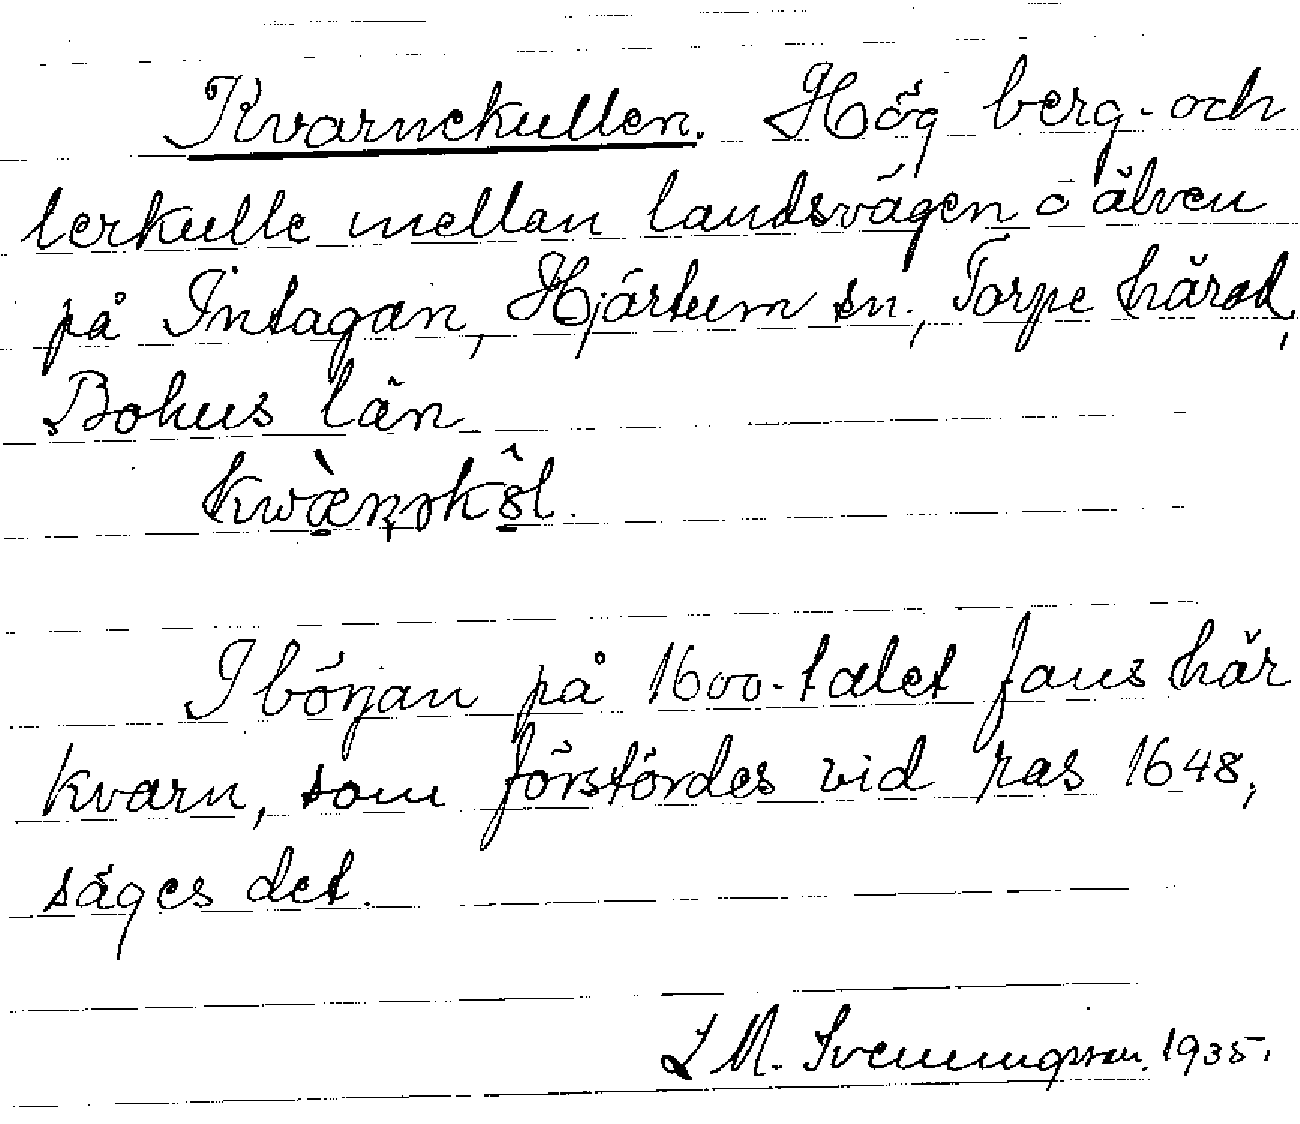 Kvarnekullen. Hög berg- och
lerkulle mellan landsvägen o älven
på Intagan, Hjärtum sn., Torpe härad,
Bohus län
I början på 1600-talet fans här
kvarn, som förstördes vid ras 1648,
säges det.
L M. Svenningsson. 1935.